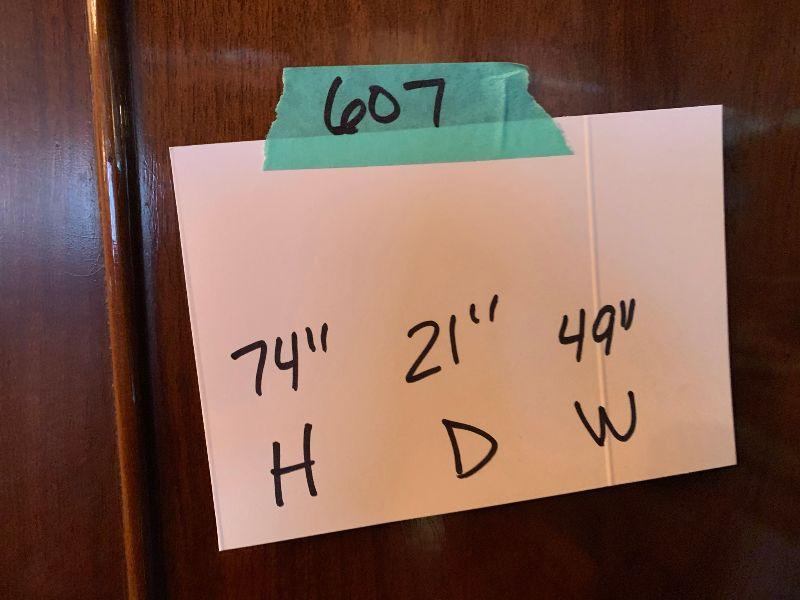 607
74" 21" 49"
H D W